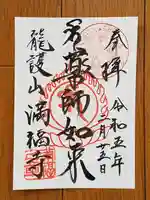 奉拝
令和五年
二月十五日
薬師如来
龍護山
満福寺